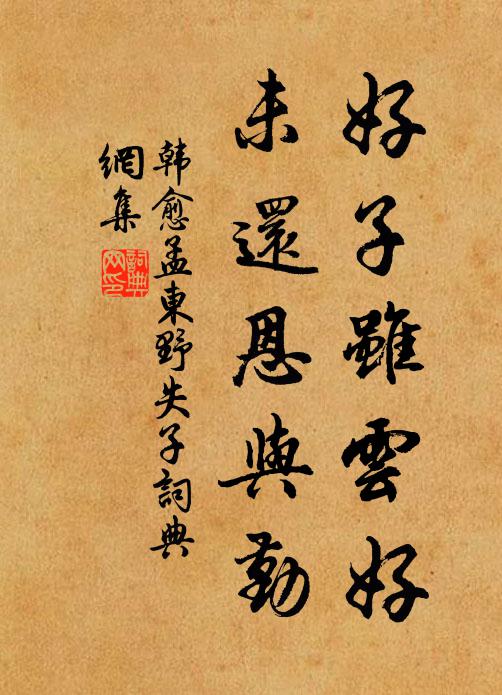 好子雖雲好
未還恩與勤
韩愈孟東野失子詞典
網集
詞典
网印